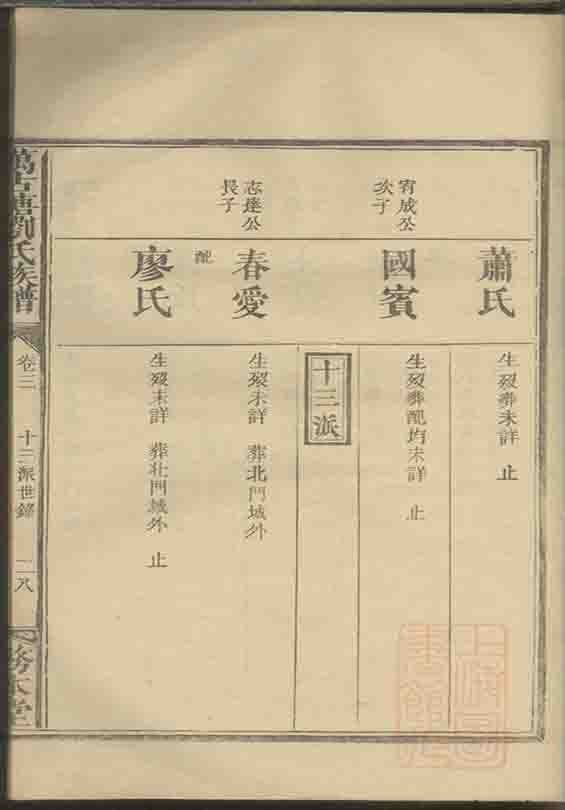 蕭氏
生歿葬未詳 止
宵成公
次子
國賓
生歿葬配均未詳 止
十三派
志達公
長子
春愛
生歿未詳 葬北門城外
配
廖氏
生歿未詳 葬北門城外 止
劉氏族譜
卷三
十三派世錄
二八
務本堂
上海圖
書館藏